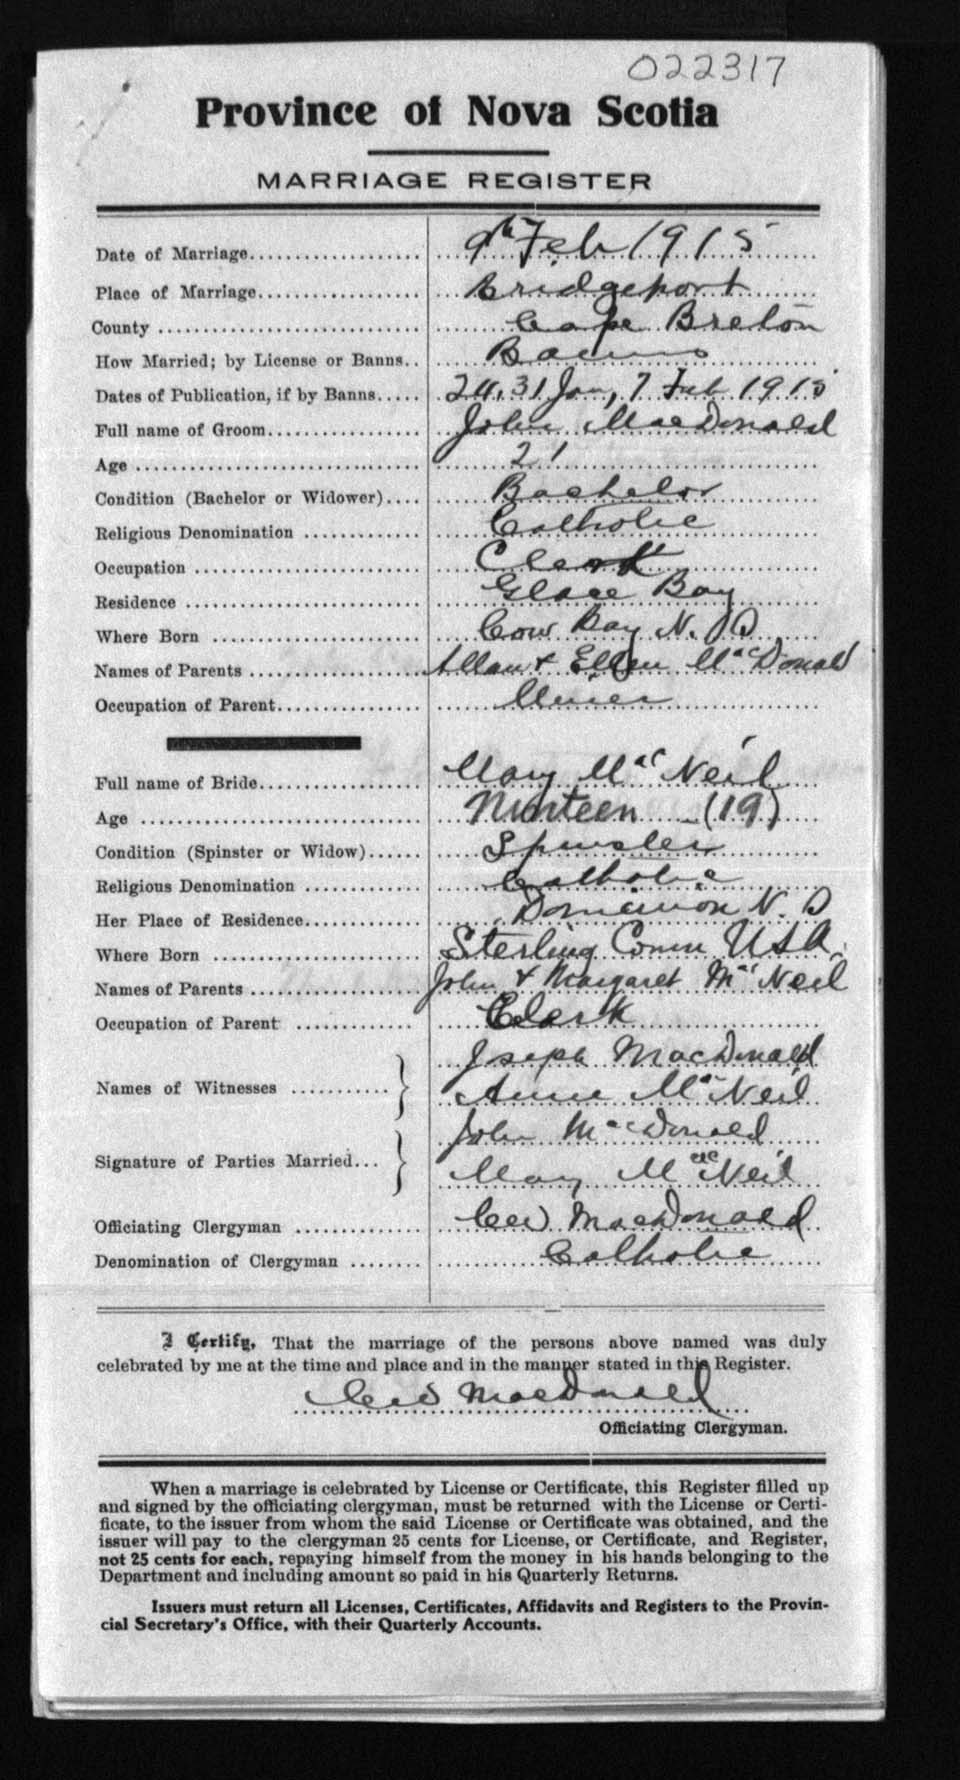 022317
Province of Nova Scotia
MARRIAGE REGISTER
Date of Marriage.................... 9th Feb 1915
Place of Marriage................... Bridgeport
County .............................. Cape Breton
How Married; by License or Banns.. Banns
Dates of Publication, if by Banns..... 24, 31 Jan, 7 Feb 1915
Full name of Groom.................. John MacDonald
Age ................................. 21
Condition (Bachelor or Widower).... Bachelor
Religious Denomination ............. Catholic
Occupation .......................... Clerk
Residence ........................... Glace Bay
Where Born ........................ Cow Bay N. S
Names of Parents ................... Allan & Ellen MacDonald
Occupation of Parent................ Miner
Full name of Bride................... Mary MacNeil
Age ................................. Ninteen (19)
Condition (Spinster or Widow)...... Spinster
Religious Denomination ............. Catholic
Her Place of Residence............. Dominion N. S
Where Born ........................ Sterling Conn USA.
Names of Parents ................... John & Margaret McNeil
Occupation of Parent ............. Clerk
Jseph MacDonald
Names of Witnesses ........... } Annie McNeil
John MacDonald
Signature of Parties Married... } Mary MacNeil
Officiating Clergyman ............. MacDonald
Denomination of Clergyman ........ Catholic
I Certify, That the marriage of the persons above named was duly
celebrated by me at the time and place and in the manner stated in this Register.
MacDonald
Officiating Clergyman.
When a marriage is celebrated by License or Certificate, this Register filled up
and signed by the officiating clergyman, must be returned with the License or Certi-
ficate, to the issuer from whom the said License or Certificate was obtained, and the
issuer will pay to the clergyman 25 cents for License, or Certificate, and Register,
not 25 cents for each, repaying himself from the money in his hands belonging to the
Department and including amount so paid in his Quarterly Returns.
Issuers must return all Licenses, Certificates, Affidavits and Registers to the Provin-
cial Secretary's Office, with their Quarterly Accounts.